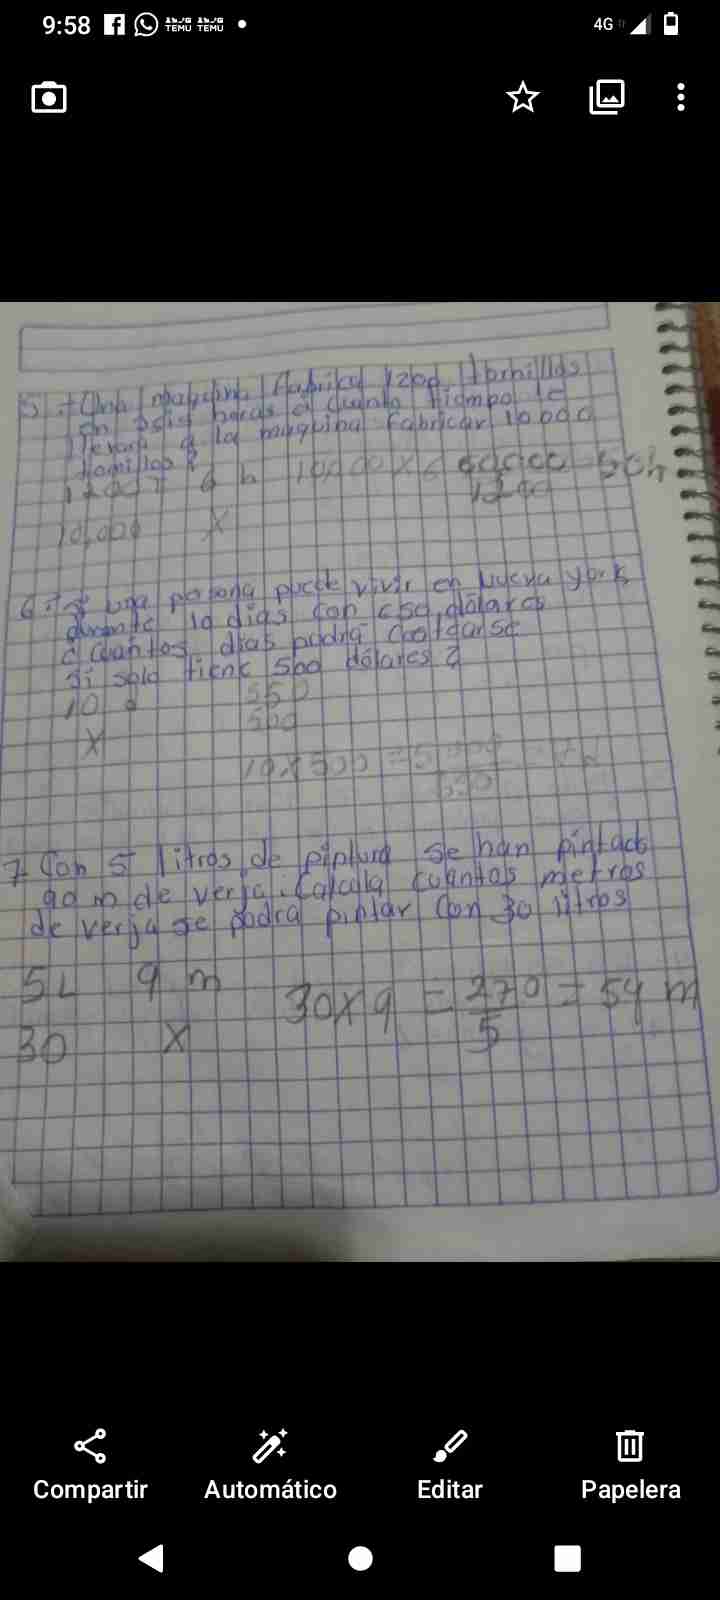 9:58
TEMU TEMU
4G
5.- Una maquina fabrica 1200 tornillos
en seis horas a cuanto tiempo le
llevara a la maquina fabricar 10000
tornillos
1200 T 6 h 10,000 x 6 60000 = 50h
1200
10,000 x
6.- Si una persona puede vivir en nueva york
durante 10 dias con 650 dolares
¿ cuantos dias podra costearse
si solo tiene 500 dolares?
10 d
500
x
10 x 500 =
650
7 Con 5 litros de pintura se han pintado
90 m de verja. Calcula cuantos metros
de verja se podra pintar con 30 litros
5L 9 m 30 x 9 = 270 = 54 m
5
30 x
Compartir
Automático
Editar
Papelera